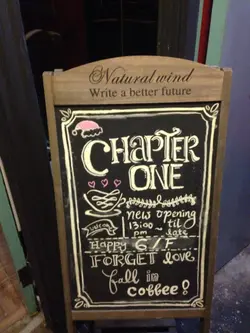 Naturalwind
Write a better future
CHAPTER
ONE
new opening
13:00 ~ til
pm late
Happy G/F
FORGET love
fall in
coffee!